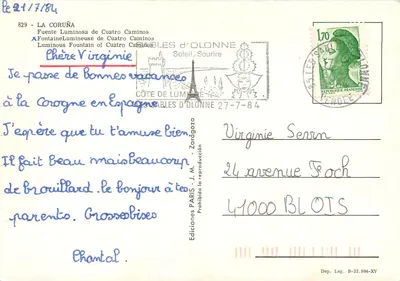 Le 21/7/84
829 - LA CORUÑA
Fuente Luminosa de Cuatro Caminos
Fontaine Lumineuse de Cuatro Caminos
Luminous Fountain of Cuatro Caminos
Chère Virginie
Je passe de bonnes vacances
à la Corogne en Espagne
J'espère que tu t'amuse bien
Il fait beau mais beaucoup
de brouillard. le bonjour à tes
parents. Grosses bises
Chantal.
SABLES D'OLONNE
Soleil-Sourire
CÔTE DE LUMIÈRE
SABLES D'OLONNE 27-7-84
1,70
Ediciones PARIS - J. M. - Zaragoza
Prohibida la reproducción
Virginie
24 avenue Foch
41000 BLOIS
Dep. Leg. B-31.894-XV